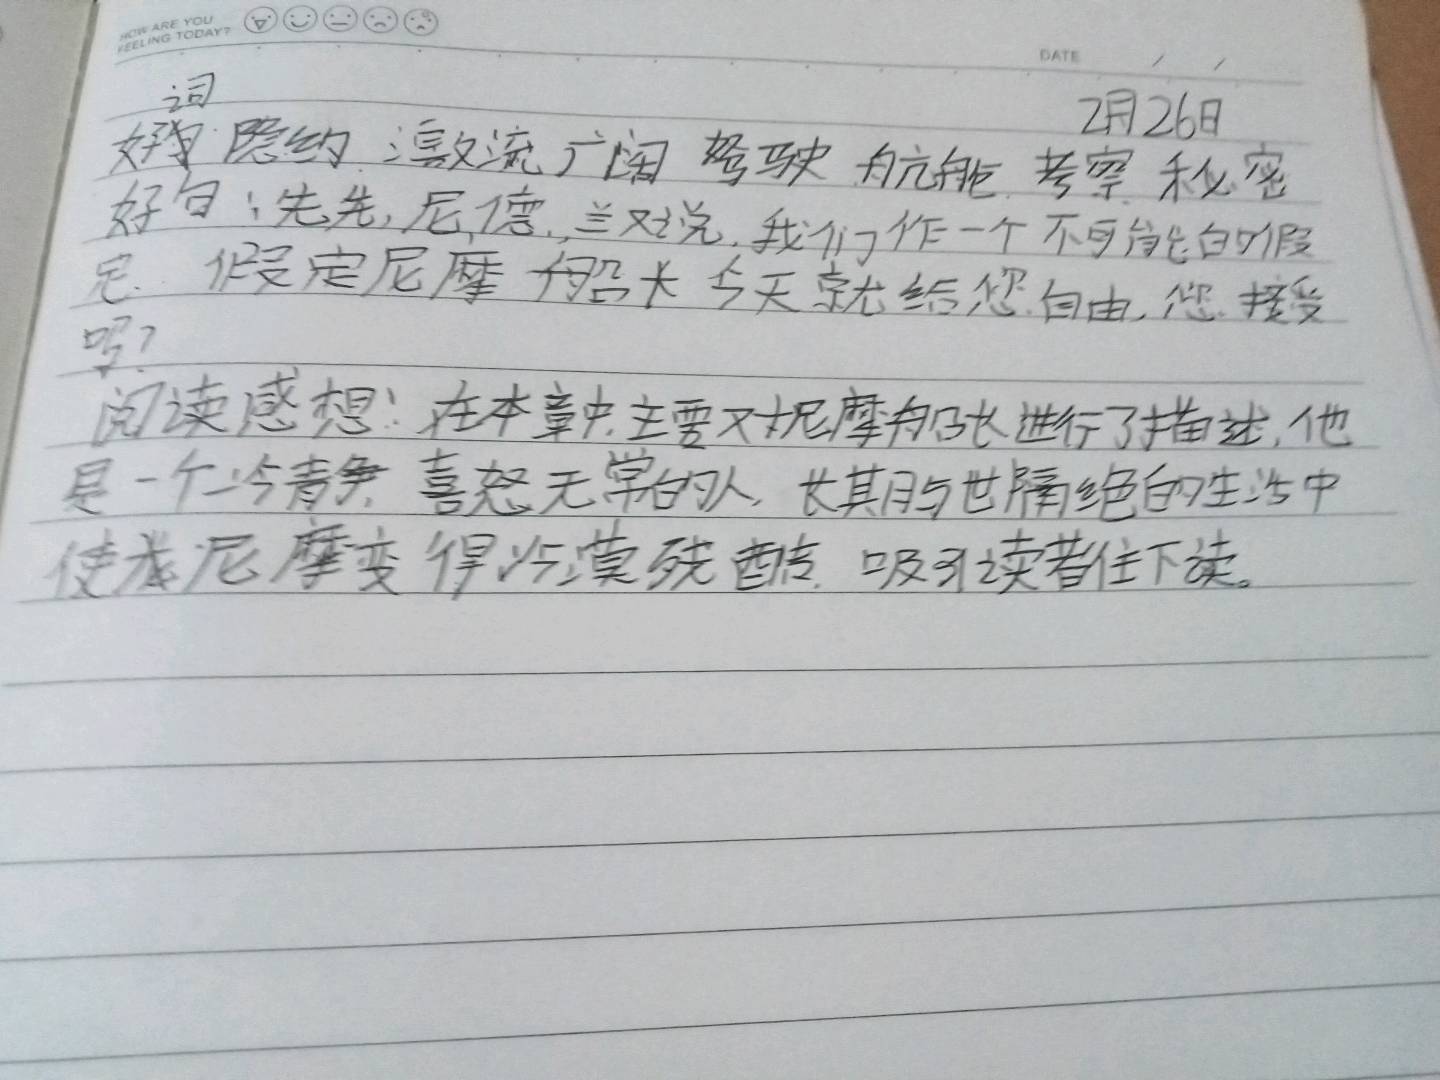 HOW ARE YOU
FEELING TODAY?
DATE / /
词
2月26日
好 隐约 激流 广阔 驾驶 航舵 考察 秘密
好句：先先，尼德，兰对说，我们作一个不可能的假
定，假定尼摩船长今天就给您自由，您接受
吗？
阅读感想：在本章中主要对尼摩船长进行了描述，他
是一个冷静，喜怒无常的人，长期与世隔绝的生活中
使尼摩变得冷漠残酷，吸引读者往下读。